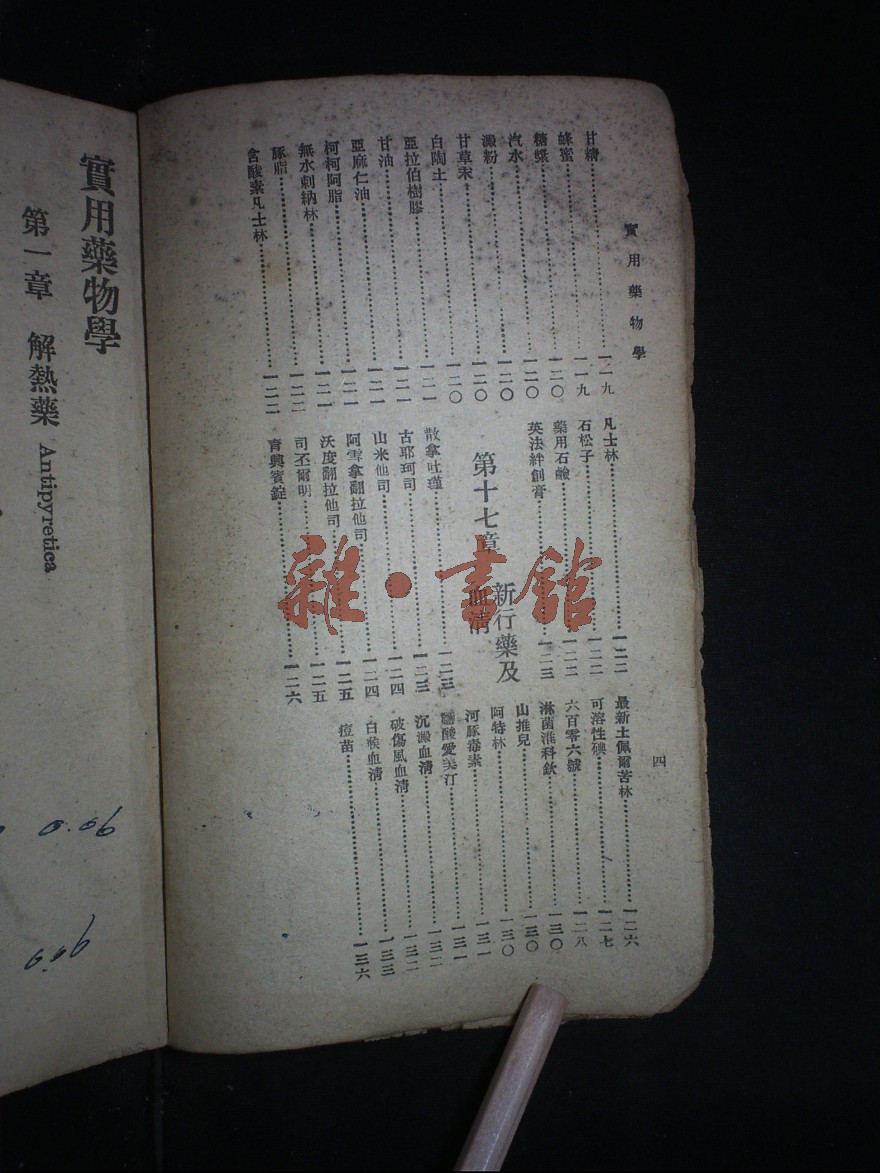 實用藥物學
四
甘精……一一九
蜂蜜……一一九
糖漿……一二〇
汽水……一二〇
澱粉……一二〇
甘草末……一二〇
白陶土……一二〇
亞拉伯樹膠……一二一
甘油……一二一
亞麻仁油……一二一
柯柯阿脂……一二一
無水刺納林……一二一
豚脂……一二二
含酸素凡士林……一二二
凡士林……一二二
石松子……一二二
藥用石鹼……一二二
英法絆創膏……一二三
第十七章 新行藥及血清
散拿吐瑾……一二三
古耶珂司……一二三
山米他司……一二四
阿雪拿翻拉他司……一二五
沃度翻拉他司……一二五
司丕爾明……一二五
育興賓錠……一二六
最新土佩爾苦林……一二六
可溶性碘……一二七
六百零六號……一二八
淋菌淮科欽……一三〇
山推兒……一三〇
阿特林……一三〇
河豚毒素……一三一
鹽酸愛美汀……一三一
沉澱血清……一三二
破傷風血清……一三二
白喉血清……一三三
痘苗……一三六
實用藥物學
第一章 解熱藥 Antipyretica
雜·書館